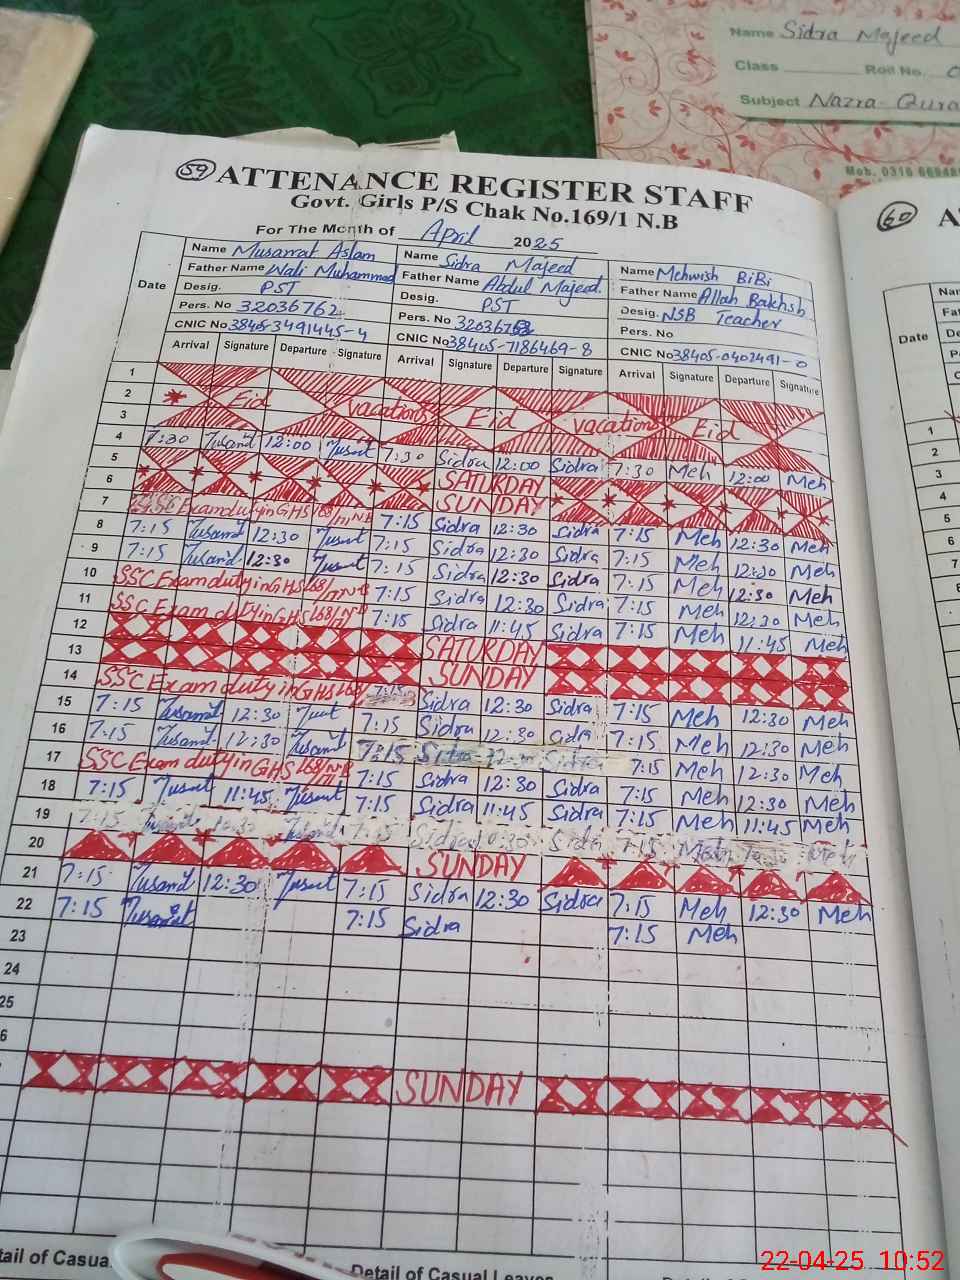 Name Sidra Majeed
Class Roll No.
Subject Nazra Qura
Mob. 0316
59 ATTENANCE REGISTER STAFF
Govt. Girls P/S Chak No.169/1 N.B
For The Month of April 2025
60
Name Musarrat Aslam Name Sidra Majeed Name Mehwish BiBi
Father Name Wali Muhammad Father Name Abdul Majeed. Father Name Allah Bakhsh
Desig. PST Desig. PST Desig. NSB Teacher
Pers. No 32036762 Pers. No Pers. No
CNIC No 38405-3491445-4 CNIC No 38405-7186469-8 CNIC No 38405-0402491-0
Date Arrival Signature Departure Signature Arrival Signature Departure Signature Arrival Signature Departure Signature
1
2 Eid vacations Eid vacation Eid
3
4 7:30 12:00 7:30 Sidra 12:00 Sidra 7:30 Meh 12:00 Meh
5 SATURDAY
6 SUNDAY
7 SSC Exam duty in GHS 168/1 NB 7:15 Sidra 12:30 Sidra 7:15 Meh 12:30 Meh
8 7:15 12:30 7:15 Sidra 12:30 Sidra 7:15 Meh 12:30 Meh
9 7:15 12:30 7:15 Sidra 12:30 Sidra 7:15 Meh 12:30 Meh
10 SSC Exam duty in GHS 168/1 NB 7:15 Sidra 12:30 Sidra 7:15 Meh 12:30 Meh
11 SSC Exam duty in GHS 168/1 7:15 Sidra 11:45 Sidra 7:15 Meh 11:45 Meh
12 SATURDAY
13 SUNDAY
14 SSC Exam duty in GHS 168 7:15 Sidra 12:30 Sidra 7:15 Meh 12:30 Meh
15 7:15 12:30 7:15 Sidra 12:30 Sidra 7:15 Meh 12:30 Meh
16 7:15 12:30 7:15 Sidra Sidra 7:15 Meh 12:30 Meh
17 SSC Exam duty in GHS 168/1 NB 7:15 Sidra 12:30 Sidra 7:15 Meh 12:30 Meh
18 7:15 11:45 7:15 Sidra 11:45 Sidra 7:15 Meh 11:45 Meh
19 7:15 7:15 Sidra Sidra 7:15 Meh Meh
20 SUNDAY
21 7:15 12:30 7:15 Sidra 12:30 Sidra 7:15 Meh 12:30 Meh
22 7:15 7:15 Sidra 7:15 Meh
23
24
25
6
SUNDAY
Detail of Casual Leaves
Date
1
2
3
4
5
6
22-04-25 10:52